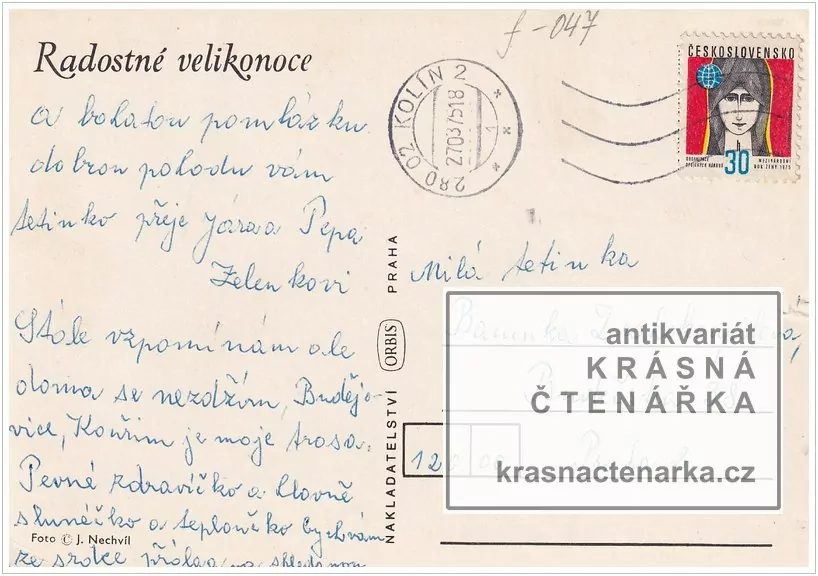 f-047
Radostné velikonoce
ČESKOSLOVENSKO
280 02 KOLÍN 2
27.03.75 18
1
ORGANIZACE SPOJENÝCH NÁRODŮ
30
MEZINÁRODNÍ ROK ŽENY 1975
a bohatou pomlázku
dobrou pohodu vám
tetinko přeje Jára a Pepa
Zelenkovi
Stále vzpomínám ale
doma se nezdžím, Budějo-
vice, Kouřim je moje trasa.
Pevné zdravíčko a hlavně
sluníčko a teploučko bych vám
ze srdce přála
Foto © J. Nechvíl
NAKLADATELSTVÍ ORBIS PRAHA
Milá tetinka
120 00
antikvariát
KRÁSNÁ
ČTENÁŘKA
krasnactenarka.cz